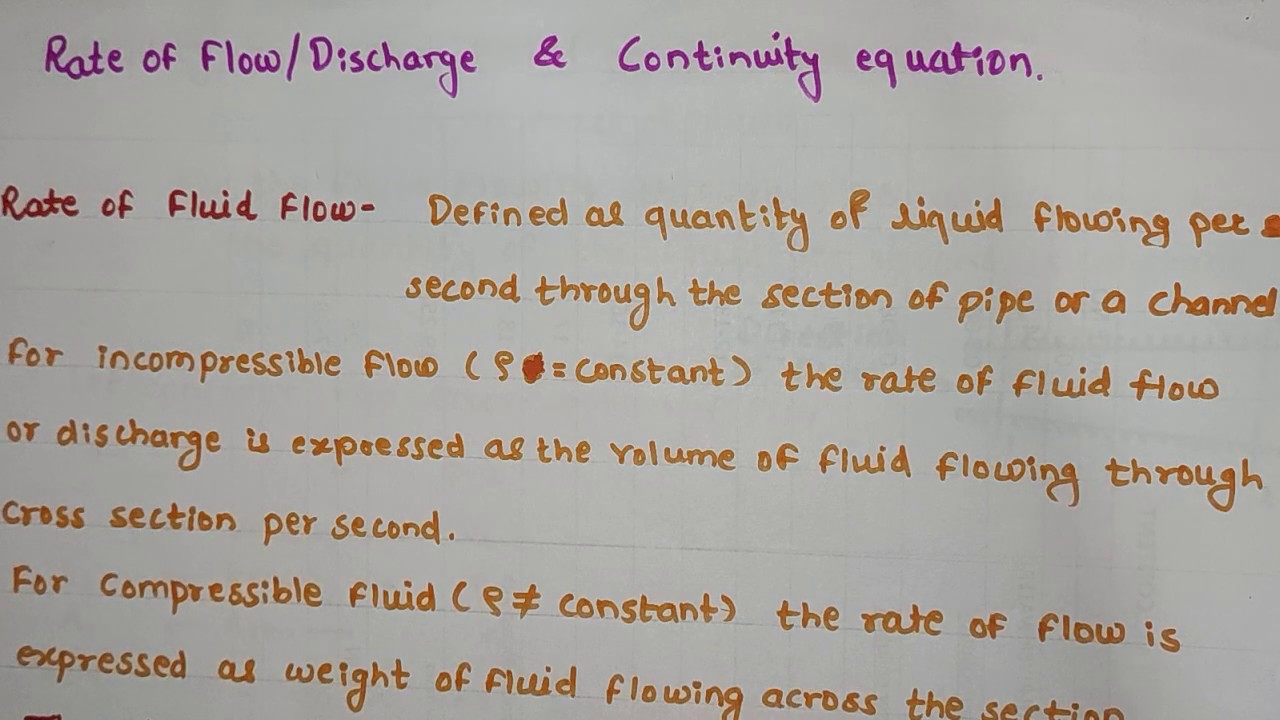 Rate of Flow/Discharge & Continuity equation.
Rate of Fluid Flow- Defined as quantity of liquid flowing per
second through the section of pipe or a channel
For incompressible flow (ρ = constant) the rate of fluid flow
or discharge is expressed as the volume of fluid flowing through
cross section per second.
For compressible fluid (ρ ≠ constant) the rate of flow is
expressed as weight of fluid flowing across the section